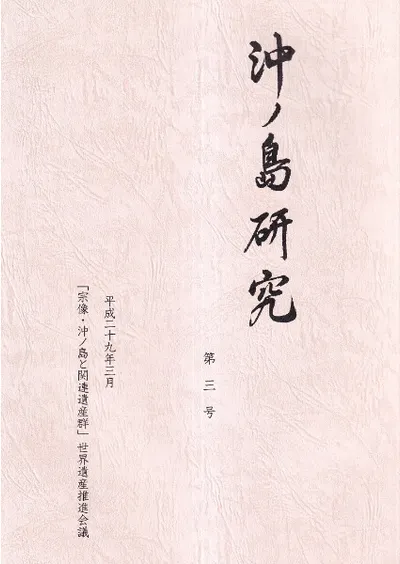 沖ノ島研究
第三号
平成二十九年三月
「宗像・沖ノ島と関連遺産群」世界遺産推進会議